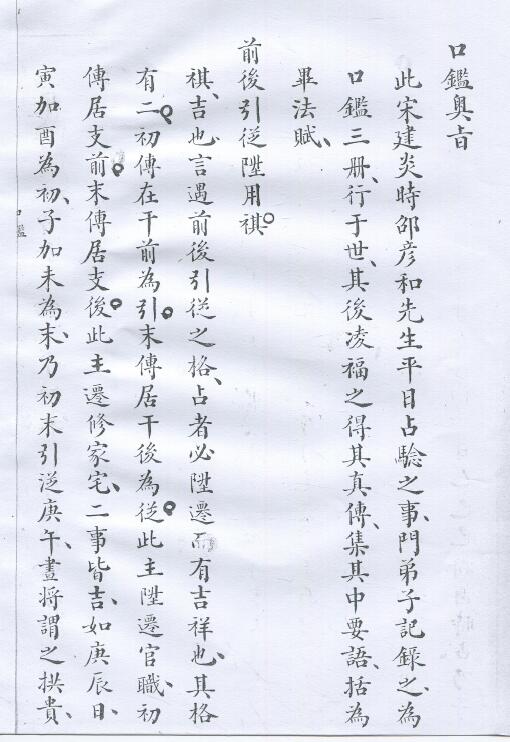 口鑑奧旨
此宋建炎時邵彥和先生平日占驗之事、門弟子記錄之、為
口鑑三冊、行于世、其後凌福之得其真傳、集其中要語、括為
畢法賦、
前後引従陞用祺。
祺、吉也、言遇前後引従之格、占者必陞遷而有吉祥也、其格
有二、初傳在干前為引。末傳居干後為従。此主陞遷官職、初
傳居支前。末傳居支後。此主遷修家宅、二事皆吉、如庚辰日、
寅加酉為初、子加未為末、乃初末引従庚午、晝將謂之拱貴、
口鑑